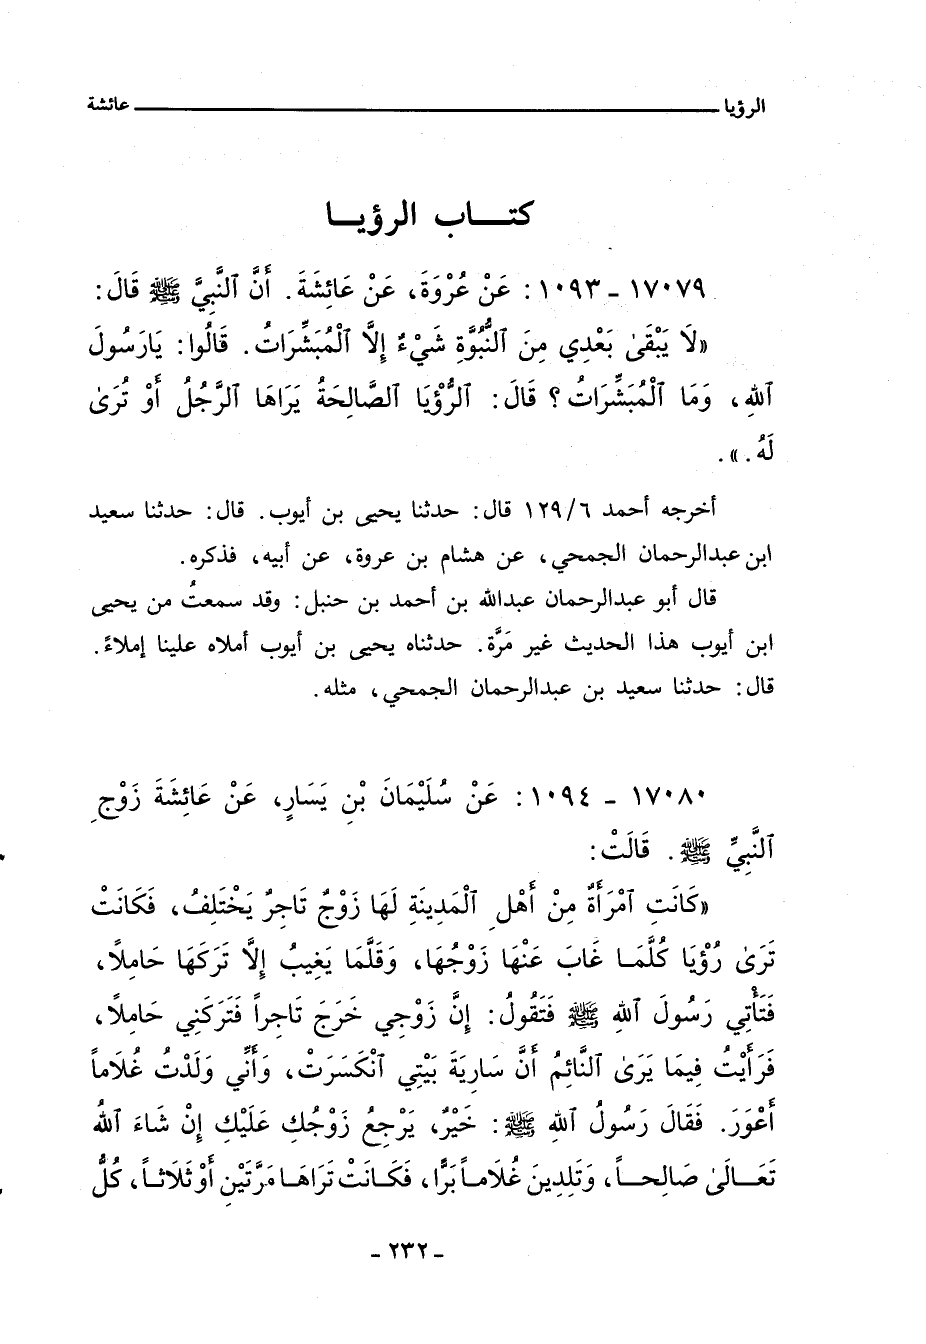 الرؤيا عائشة
كتاب الرؤيا
١٧٠٧٩ - ١٠٩٣: عَنْ عُرْوَةَ، عَنْ عَائِشَةَ. أَنَّ ٱلنَّبِيَّ ﷺ قَالَ:
«لَا يَبْقَىٰ بَعْدِي مِنَ ٱلنُّبُوَّةِ شَيْءٌ إِلَّا ٱلْمُبَشِّرَاتُ. قَالُوا: يَارَسُولَ
ٱللهِ، وَمَا ٱلْمُبَشِّرَاتُ؟ قَالَ: ٱلرُّؤْيَا ٱلصَّالِحَةُ يَرَاهَا ٱلرَّجُلُ أَوْ تُرَىٰ
لَهُ.».
أخرجه أحمد ٦/١٢٩ قال: حدثنا يحيى بن أيوب. قال: حدثنا سعيد
ابن عبدالرحمان الجمحي، عن هشام بن عروة، عن أبيه، فذكره.
قال أبو عبدالرحمان عبدالله بن أحمد بن حنبل: وقد سمعتُ من يحيى
ابن أيوب هذا الحديث غير مَرَّة. حدثناه يحيى بن أيوب أملاه علينا إملاءً.
قال: حدثنا سعيد بن عبدالرحمان الجمحي، مثله.
١٧٠٨٠ - ١٠٩٤: عَنْ سُلَيْمَانَ بْنِ يَسَارٍ، عَنْ عَائِشَةَ زَوْجِ
ٱلنَّبِيِّ ﷺ. قَالَتْ:
«كَانَتِ ٱمْرَأَةٌ مِنْ أَهْلِ ٱلْمَدِينَةِ لَهَا زَوْجٌ تَاجِرٌ يَخْتَلِفُ، فَكَانَتْ
تَرَىٰ رُؤْيَا كُلَّمَا غَابَ عَنْهَا زَوْجُهَا، وَقَلَّمَا يَغِيبُ إِلَّا تَرَكَهَا حَامِلًا،
فَتَأْتِي رَسُولَ ٱللهِ ﷺ فَتَقُولُ: إِنَّ زَوْجِي خَرَجَ تَاجِراً فَتَرَكَنِي حَامِلًا،
فَرَأَيْتُ فِيمَا يَرَىٰ ٱلنَّائِمُ أَنَّ سَارِيَةَ بَيْتِي ٱنْكَسَرَتْ، وَأَنِّي وَلَدْتُ غُلَاماً
أَعْوَرَ. فَقَالَ رَسُولُ ٱللهِ ﷺ: خَيْرٌ، يَرْجِعُ زَوْجُكِ عَلَيْكِ إِنْ شَاءَ ٱللهُ
تَعَالَىٰ صَالِحاً، وَتَلِدِينَ غُلَاماً بَرًّا، فَكَانَتْ تَرَاهَا مَرَّتَيْنِ أَوْ ثَلَاثاً، كُلُّ
- ٢٣٢ -